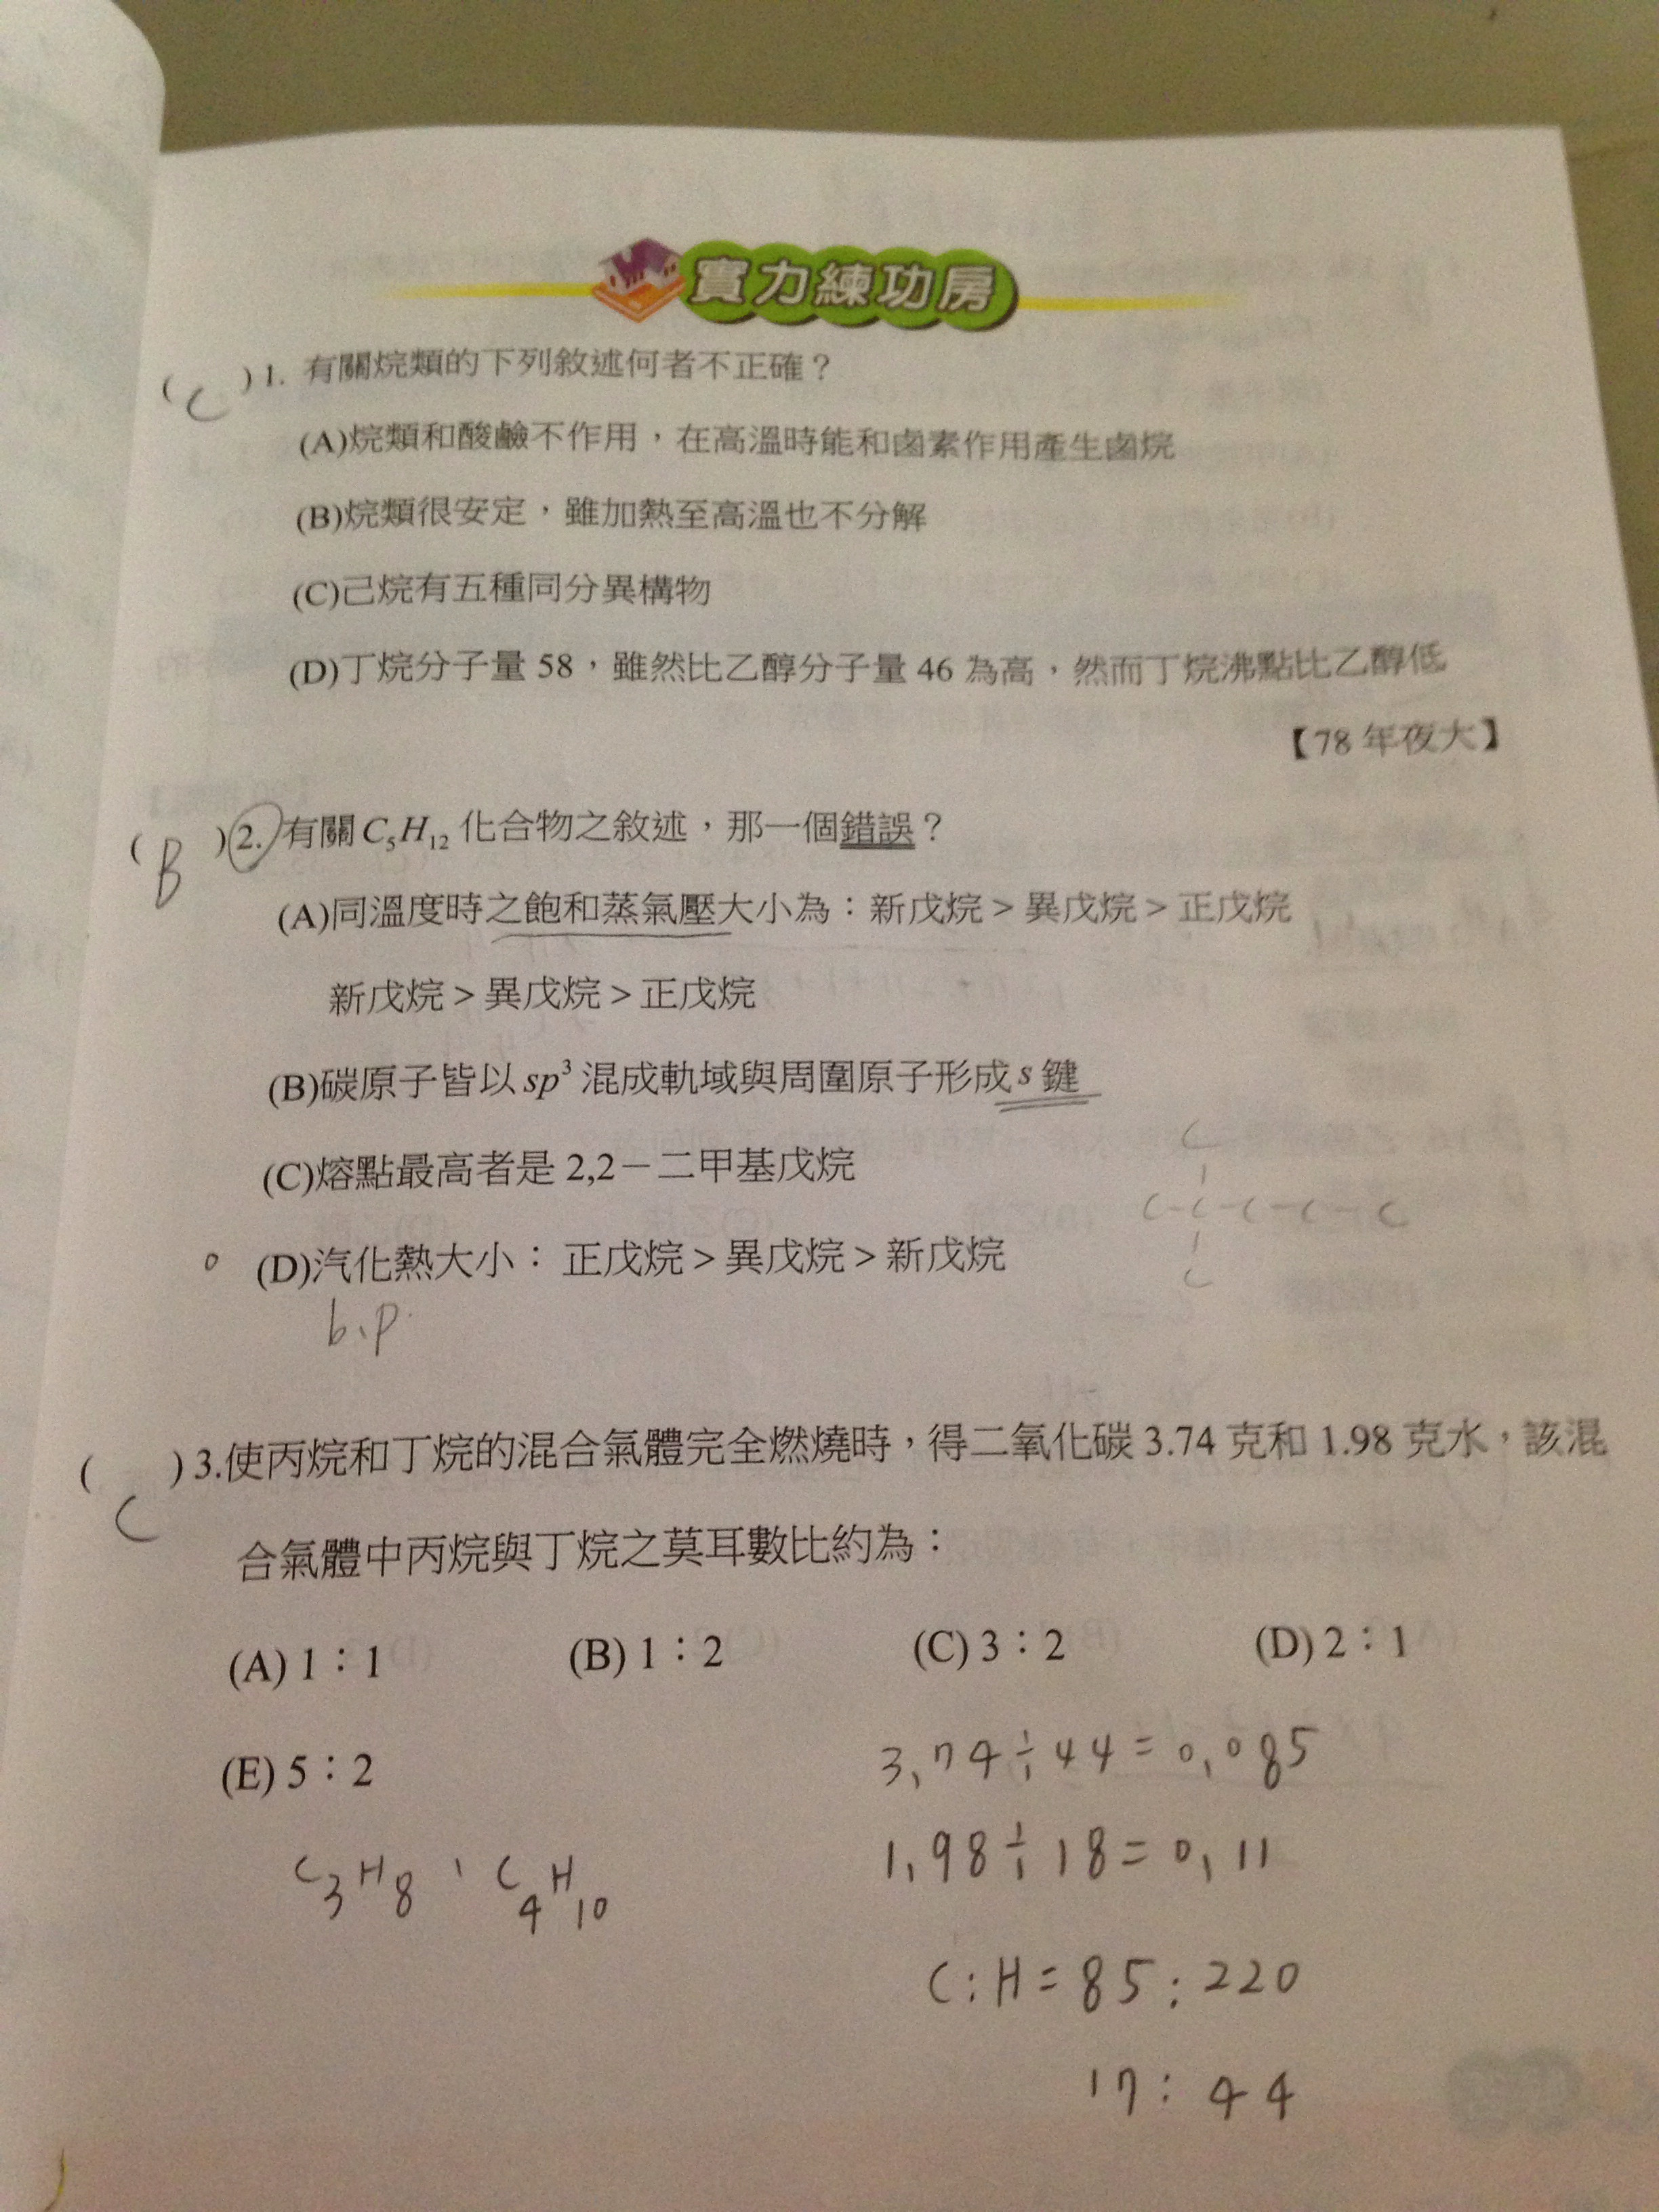 實力練功房
( C )1. 有關烷類的下列敘述何者不正確？
(A)烷類和酸鹼不作用，在高溫時能和鹵素作用產生鹵烷
(B)烷類很安定，雖加熱至高溫也不分解
(C)己烷有五種同分異構物
(D)丁烷分子量 58，雖然比乙醇分子量 46 為高，然而丁烷沸點比乙醇低
【78 年夜大】
( B )2. 有關 C₅H₁₂ 化合物之敘述，那一個錯誤？
(A)同溫度時之飽和蒸氣壓大小為：新戊烷 > 異戊烷 > 正戊烷
新戊烷 > 異戊烷 > 正戊烷
(B)碳原子皆以 sp³ 混成軌域與周圍原子形成 s 鍵
(C)熔點最高者是 2,2－二甲基戊烷
C
C-C-C-C-C
C
(D)汽化熱大小： 正戊烷 > 異戊烷 > 新戊烷
b.p.
( C )3.使丙烷和丁烷的混合氣體完全燃燒時，得二氧化碳 3.74 克和 1.98 克水，該混
合氣體中丙烷與丁烷之莫耳數比約為：
(A) 1：1 (B) 1：2 (C) 3：2 (D) 2：1
(E) 5：2
3.74÷44=0.085
1.98÷18=0.11
C₃H₈、C₄H₁₀
C:H=85:220
17:44